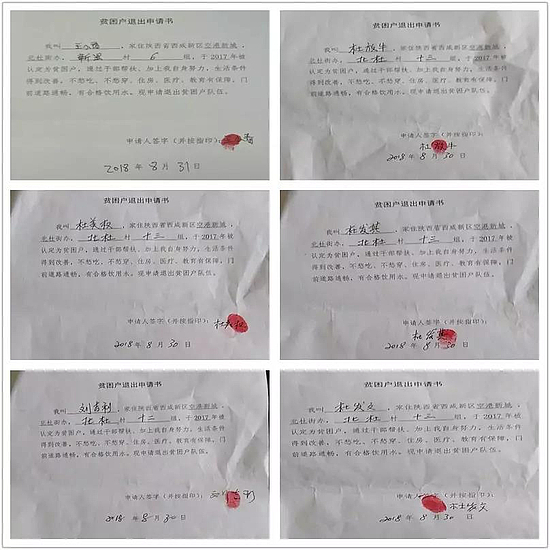 贫困户退出申请书
我叫 王 ，家住陕西省西咸新区空港新城，
北杜街办， 靳里 村 6 组，于2017年被
认定为贫困户，通过干部帮扶、加上我自身努力，生活条件
得到改善，不愁吃、不愁穿、住房、医疗、教育有保障，门
前道路通畅，有合格饮用水。现申请退出贫困户队伍。
申请人签字（并按指印）：
2018 年 8 月 31 日
贫困户退出申请书
我叫 杜 牛 ，家住陕西省西咸新区空港新城，
北杜街办， 北杜 村 十三 组，于2017年被
认定为贫困户，通过干部帮扶、加上我自身努力，生活条件
得到改善，不愁吃、不愁穿、住房、医疗、教育有保障，门
前道路通畅，有合格饮用水。现申请退出贫困户队伍。
申请人签字（并按指印）：
杜 牛
2018 年 8 月 30 日
贫困户退出申请书
我叫 杜美 ，家住陕西省西咸新区空港新城，
北杜街办， 北杜 村 十三 组，于2017年被
认定为贫困户，通过干部帮扶、加上我自身努力，生活条件
得到改善，不愁吃、不愁穿、住房、医疗、教育有保障，门
前道路通畅，有合格饮用水。现申请退出贫困户队伍。
申请人签字（并按指印）：杜美
2018 年 8 月 30 日
贫困户退出申请书
我叫 杜发 ，家住陕西省西咸新区空港新城，
北杜街办， 北杜 村 十三 组，于2017年被
认定为贫困户，通过干部帮扶、加上我自身努力，生活条件
得到改善，不愁吃、不愁穿、住房、医疗、教育有保障，门
前道路通畅，有合格饮用水。现申请退出贫困户队伍。
申请人签字（并按指印）：
杜发
2018 年 8 月 30 日
贫困户退出申请书
我叫 刘 利 ，家住陕西省西咸新区空港新城，
北杜街办， 北杜 村 十二 组，于2017年被
认定为贫困户，通过干部帮扶、加上我自身努力，生活条件
得到改善，不愁吃、不愁穿、住房、医疗、教育有保障，门
前道路通畅，有合格饮用水。现申请退出贫困户队伍。
申请人签字（并按指印）：
2018 年 8 月 30 日
贫困户退出申请书
我叫 杜发文 ，家住陕西省西咸新区空港新城，
北杜街办， 北杜 村 十三 组，于2017年被
认定为贫困户，通过干部帮扶、加上我自身努力，生活条件
得到改善，不愁吃、不愁穿、住房、医疗、教育有保障，门
前道路通畅，有合格饮用水。现申请退出贫困户队伍。
申请人签字（并按指印）：
杜发文
2018 年 8 月 30 日